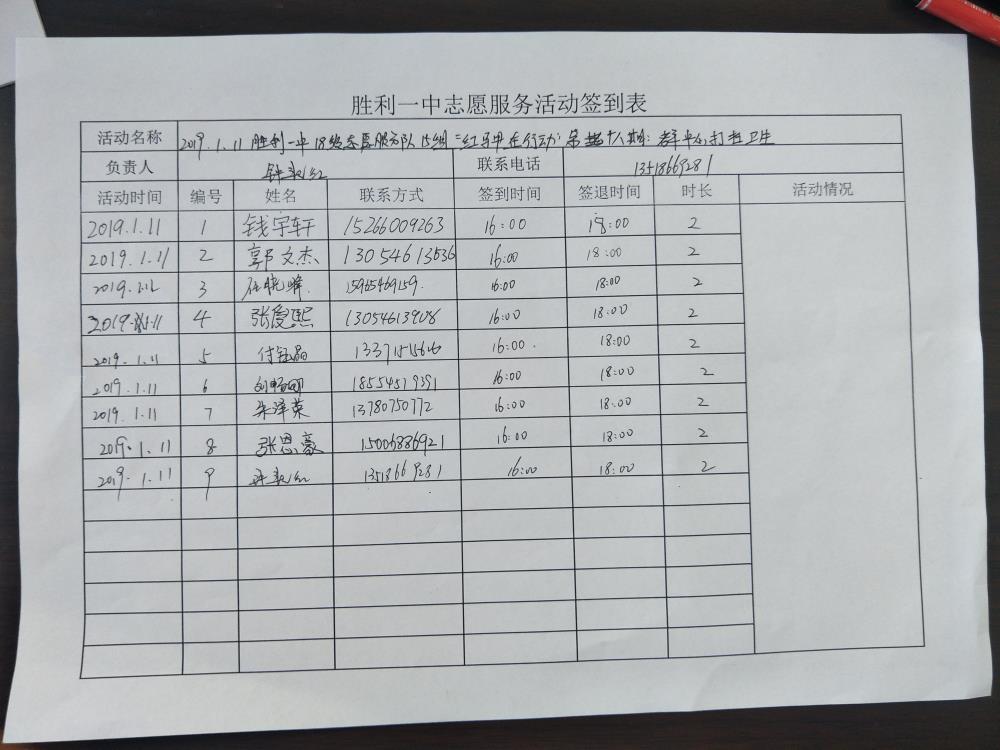 胜利一中志愿服务活动签到表
活动名称 2019.1.11 胜利一中18级志愿服务队15组"红马甲在行动" 第 十八期: 打扫卫生
负责人 联系电话 13518669281
活动时间 编号 姓名 联系方式 签到时间 签退时间 时长 活动情况
2019.1.11 1 钱宇轩 15266009263 16:00 18:00 2
2019.1.11 2 郭文杰 13054613536 16:00 18:00 2
2019.1.12 3 晓峰 15965469159. 16:00 18:00 2
2019.1.11 4 张熙 13054613908 16:00 18:00 2
2019.1.11 5 付钰晶 13371515646 16:00. 18:00 2
2019.1.11 6 刘 18554519391 16:00 18:00 2
2019.1.11 7 朱泽荣 13780750772 16:00 18:00 2
2019.1.11 8 张恩豪 15006886921 16:00 18:00 2
2019.1.11 9 13518669281 16:00 18:00 2